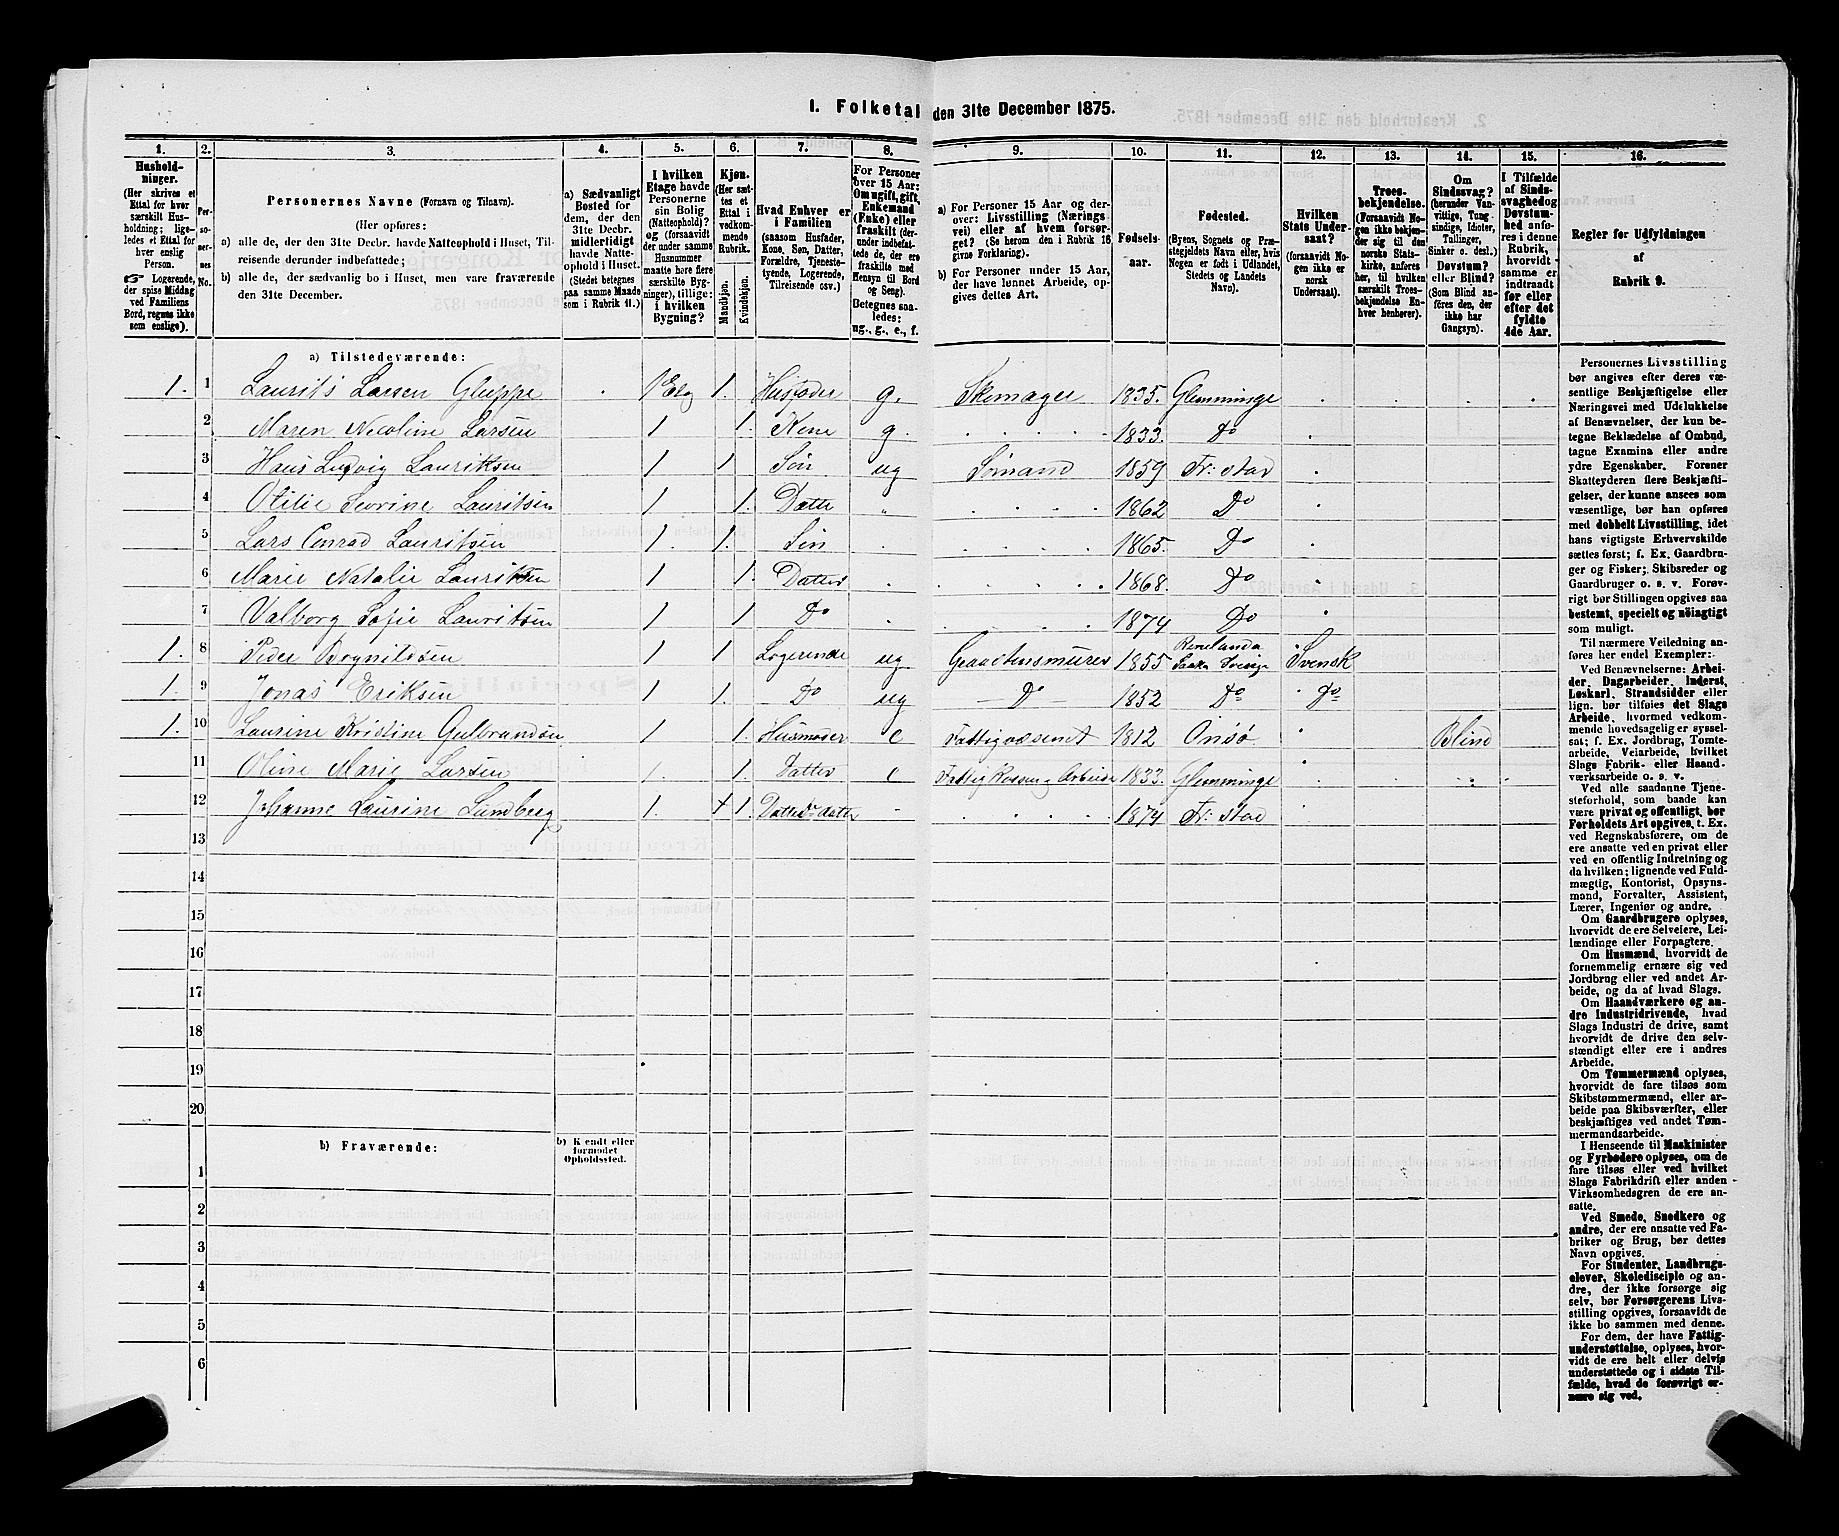 1. Folketal den 31te December 1875.
1.
Hushold-
ninger.
(Her skrives et
Ettal for hver
særskilt Hus-
holdning; lige-
ledes et Ettal for
hver enslig
Person.
Logerende,
der spise Middag
ved Familiens
Bord, regnes ikke
som enslige).
2.
Per-
soner-
nes
No.
3.
Personernes Navne (Fornavn og Tilnavn).
(Her opføres:
a) alle de, der den 31te Decbr. havde Natteophold i Huset, Til-
reisende derunder indbefattede;
b) alle de, der sædvanlig bo i Huset, men vare fraværende
den 31te December.
4.
a) Sædvanligt
Bosted for
dem, der den
31te Decbr.
midlertidigt
havde Natte-
ophold i Huset.
(Stedet betegnes
paa samme Maade
som i Rubrik 11.)
5.
I hvilken
Etage havde
Personerne
sin Bolig
(Natteophold)?
og (forsaavidt
der under samme
Husnummer
maatte høre flere
særskilte Byg-
ninger), tillige:
i hvilken
Bygning?
6.
Kjøn.
(Her sæt-
tes et
Ettal i
vedkom-
mende
Rubrik.
Mandkjøn.
Kvindekjøn.
7.
Hvad Enhver er
i Familien
(saasom Husfader,
Kone, Søn, Datter,
Forældre, Tjeneste-
tyende, Logerende,
Tilreisende osv.)
8.
For Personer
over 15 Aar:
Om ugift, gift,
Enkemand
(Enke) eller
fraskilt (der-
under indbefat-
tede de, der ere
fraskilte med
Hensyn til Bord
og Seng).
Betegnes saa-
ledes:
ug., g., e., f.
9.
a) For Personer 15 Aar og der-
over: Livsstilling (Nærings-
vei) eller af hvem forsør-
get? (Se herom den i Rubrik 16
givne Forklaring).
b) For Personer under 15 Aar,
der have lønnet Arbeide, op-
gives dettes Art.
10.
Fødsels-
aar.
11.
Fødested.
(Byens, Sognets og Præ-
stegjeldets Navn eller, hvis
Nogen er født i Udlandet,
Stedets og Landets
Navn).
12.
Hvilken
Stats Under-
saat?
(forsaavidt No-
gen ikke er
norsk
Undersaat).
13.
Troes-
bekjendelse.
(Forsaavidt No-
gen ikke bekjen-
der sig til den
norske Stats-
kirke, anføres
her, til hvilken
særskilt Troes-
bekjendelse En-
hver henhører).
14.
Om
Sindssvag?
(herunder Van-
vittige, Tung-
sindige, Idioter,
Tullinger,
Sinker o. desl.).
Døvstum?
eller Blind?
(Som Blind an-
føres den, der
ikke har
Gangsyn).
15.
I Tilfælde
af Sinds-
svaghed og
Døvstum-
hed anfø-
res i denne
Rubrik,
hvorvidt
samme er
indtraadt
før eller
efter det
fyldte
4de Aar.
16.
Regler for Udfyldningen
af
Rubrik 9.
a) Tilstedeværende:
1. 1 Laurits Larsen Gluppe 1 Etg 1. Husfader g. Skomager 1835. Glemminge
2 Maren Nicoline Larsen 1 1. Kone g. 1833. Do
3 Hans Ludvig Lauritsen 1 1 Søn ug Sømand 1859 Fr: stad
4 Otilie Sevrine Lauritsen 1 1. Datter 1862 Do
5 Lars Conrad Lauritsen 1. 1. Søn 1865. Do
6 Marie Natalie Lauritsen 1 1. Datter 1868. Do
7 Valborg Sofie Lauritsen 1 1 Do 1874 Do
1. 8 Peder Brynildsen 1 1 Logerende ug 1855 Sverige Svensk
1. 9 Jonas Eriksen 1 1. Do ug Do 1852 Do Do
1. 10 Laurine Kristine Gulbrandsen 1 1. Husmoder e Fattigvæsenet 1812 Onsø Blind
11 Oline Marie Larsen 1. 1. Datter e 1833. Glemminge
12 Johanne Laurine Lundberg 1. 1. Datters datter 1874 Fr: stad
13
14
15
16
17
18
19
20
b) Fraværende:
b) Kjendt eller
formodet
Opholdssted.
1
2
3
4
5
6
Personernes Livsstilling
bør angives efter deres væ-
sentlige Beskjæftigelse eller
Næringsvei med Udelukkelse
af Benævnelser, der kun be-
tegne Beklædelse af Ombud,
tagne Examina eller andre
ydre Egenskaber. Forener
Skatteyderen flere Beskjæfti-
gelser, der kunne ansees som
væsentlige, bør han opføres
med dobbelt Livsstilling, idet
hans vigtigste Erhvervskilde
sættes først; f. Ex. Gaardbru-
ger og Fisker; Skibsreder og
Gaardbruger o. s. v. Forøv-
rigt bør Stillingen opgives saa
bestemt, specielt og nöiagtigt
som muligt.
Til nærmere Veiledning an-
føres her endel Exempler:
Ved Benævnelserne: Arbei-
der, Dagarbeider, Inderst,
Løskarl, Strandsidder eller
lign. bør tilføies det Slags
Arbeide, hvormed vedkom-
mende hovedsagelig er syssel-
sat; f. Ex. Jordbrug, Tomte-
arbeide, Veiarbeide, hvilket
Slags Fabrik- eller Haand-
værksarbeide o. s. v.
Ved alle saadanne Tjene-
steforhold, som baade kan
være privat og offentligt, bør
Forholdets Art opgives, t. Ex.
ved Regnskabsførere, om de
ere ansatte ved en privat eller
ved en offentlig Indretning og
da hvilken; lignende ved Fuld-
mægtig, Kontorist, Opsyns-
mand, Forvalter, Assistent,
Lærer, Ingeniør og andre.
Om Gaardbrugere oplyses,
hvorvidt de ere Selveiere, Lei-
lændinge eller Forpagtere.
Om Husmænd, hvorvidt de
fornemmelig ernære sig ved
Jordbrug eller ved andet Ar-
beide, og da af hvad Slags.
Om Haandværkere og an-
dre Industridrivende, hvad
Slags Industri de drive, samt
hvorvidt de drive den selv-
stændigt eller ere i andres
Arbeide.
Om Tømmermænd oplyses,
hvorvidt de fare tilsøs som
Skibstømmermænd, eller ar-
beide paa Skibsværfter, eller
beskjæftiges ved andet Tøm-
mermandsarbeide.
I Henseende til Maskinister
og Fyrbødere oplyses, om de
fare tilsøs eller ved hvilket
Slags Fabrikdrift eller anden
Virksomhedsgren de ere an-
satte.
Ved Smede, Snedkere og
andre, der ere ansatte ved Fa-
briker og Brug, bør dettes
Navn opgives.
For Studenter, Landbrugs-
elever, Skoledisciple og an-
dre, der ikke forsørge sig
selv, bør Forsørgerens Livs-
stilling opgives, forsaavidt de
ikke bo sammen med denne.
For dem, der have Fattig-
understøttelse, oplyses, hvor-
vidt de ere helt eller delvis
understøttede og i sidste Til-
fælde, hvad de forøvrigt er-
nære sig ved.